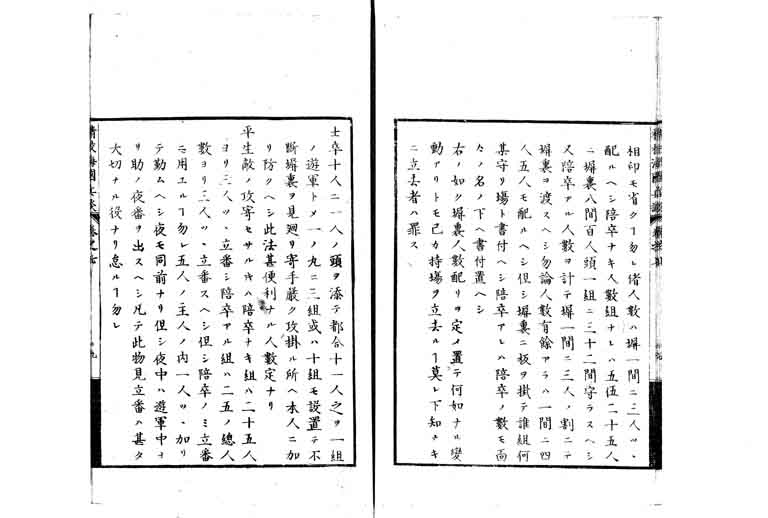 相印モ省クヿ勿レ偖人数ハ塀一間ニ三人ツヽ
配ルヘシ陪卒ナキ人数組ナレハ五伍二十五人
ニ塀裏八間百人頭一組ニ三十二間守ラスヘシ
又陪卒アル人数ヲ計テ塀一間ニ三人ノ割ニテ
塀裏ヲ渡スヘシ勿論人数有餘アラハ一間ニ四
人五人モ配ルヘシ但シ塀裏ニ板ヲ掛テ誰組何
某守リ場ト書付ヘシ陪卒アレハ陪卒ノ数モ面
々ノ名ノ下ヘ書付置ヘシ
右ノ如ク塀裏人数配リヲ定メ置テ何如ナル変
動アリトモ己カ持場ヲ立去ルヿ莫レ下知ナキ
ニ立去者ハ罪ス
士卒十人ニ一人ノ頭ヲ添テ都合十一人之ヲ一組
ノ遊軍トメ一ノ丸ニ三組或ハ十組モ設置テ不
断塀裏ヲ見廻リ寄手厳ク攻掛ル所ヘ本人ニ加
リ防クヘシ此法甚便利ナル人数定ナリ
平生敵ノ攻寄セサルキハ陪卒ナキ組ハ二十五人
ヨリ三人ツヽ立番シ陪卒アル組ハ二五ノ總人
数ヨリ三人ツヽ立番スヘシ但シ陪卒ノミ立番
ニ用エルヿ勿レ五人ノ主人ノ内一人ツヽ加リ
テ勤ムヘシ夜モ同前ナリ但シ夜中ハ遊軍中ヨ
リ助ノ夜番ヲ出スヘシ凡テ此物見立番ハ甚タ
大切ナル役ナリ怠ルヿ勿レ